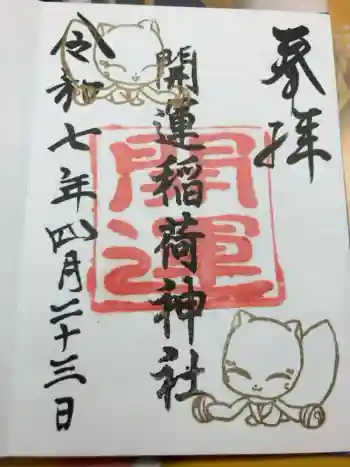 奉拝
開運稲荷神社
開運
令和七年四月二十三日